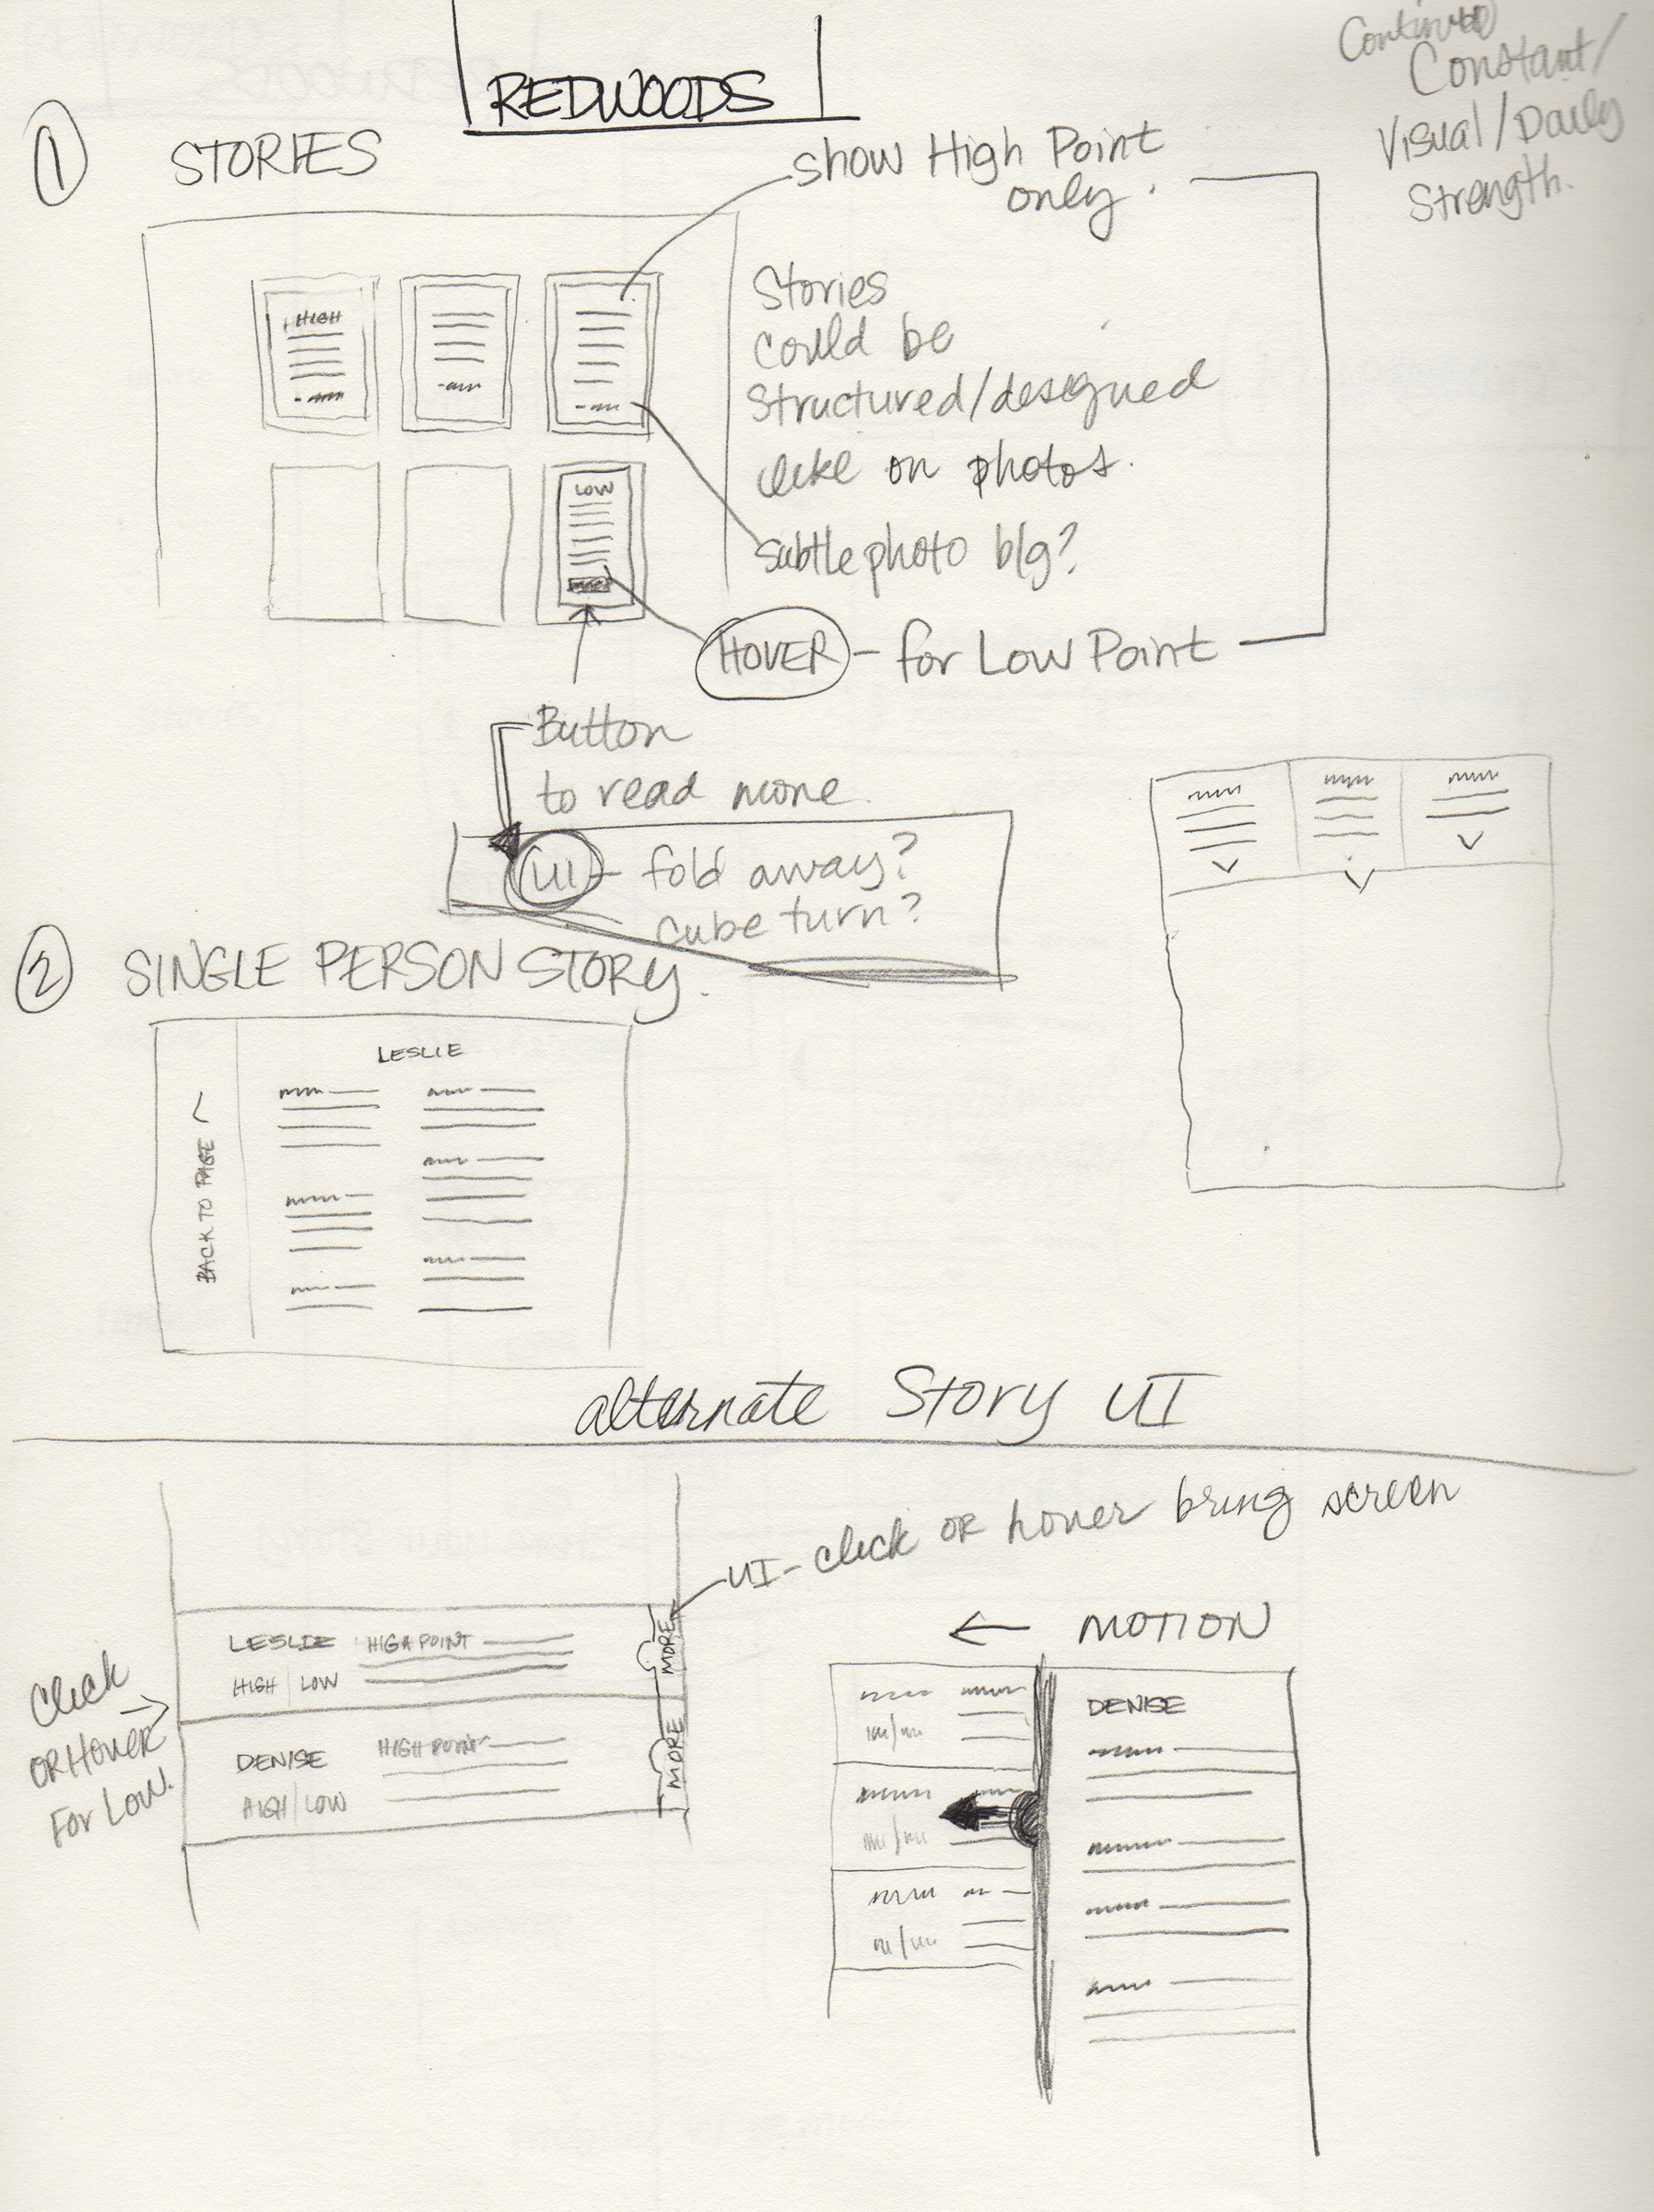 REDWOODS
Continued
Constant/
Visual/Daily
Strength.
1 STORIES
show High Point
only.
HIGH
Stories
could be
structured/designed
like on photos.
LOW
more
subtle photo b/g?
HOVER - for Low Point
Button
to read more.
UI - fold away?
cube turn?
2 SINGLE PERSON STORY.
LESLIE
BACK TO PAGE
alternate Story UI
UI - click OR hover bring screen
MOTION
LESLIE HIGH POINT
HIGH | LOW
MORE
Click
OR Hover
For Low.
DENISE HIGH POINT
HIGH | LOW
MORE
DENISE